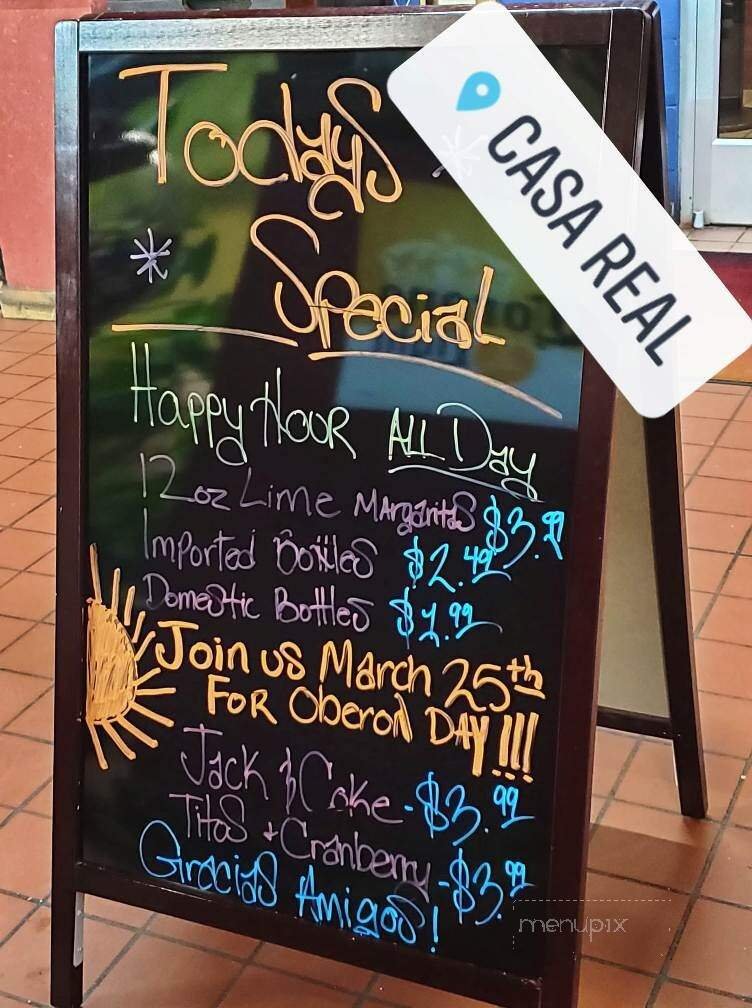 Todays
Special
CASA REAL
Happy Hour All Day
12oz Lime Margaritas $3.99
Imported Bottles $2.49
Domestic Bottles $1.99
Join us March 25th
For Oberon DAY!!!
Jack & Coke - $3.99
Titos + Cranberry - $3.99
Gracias Amigos!
menupix